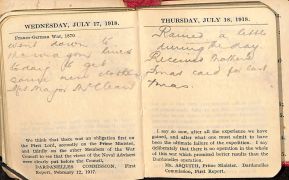 WEDNESDAY, JULY 17, 1918.
Franco-German War, 1870
went down to
wagon lines
today to get
some new clothes
Major McClean
We think that there was an obligation first on
the First Lord, secondly on the Prime Minister,
and thirdly on the other Members of the War
Council to see that the views of the Naval Advisers
were clearly put before the Council.
DARDANELLES COMMISSION, First
Report, February 12, 1917.
THURSDAY, JULY 18, 1918.
Rained a little
during the day.
Received Mother's
Xmas card for last
Xmas.
I say so now, after all the experience we have
gained, and after what one must admit to have
been the ultimate failure of the expedition. I say
deliberately that there is no operation in the whole
of this war which promised better results than the
Dardanelles operation.
Mr. ASQUITH, Prime Minister, Dardanelles
Commission, First Report.